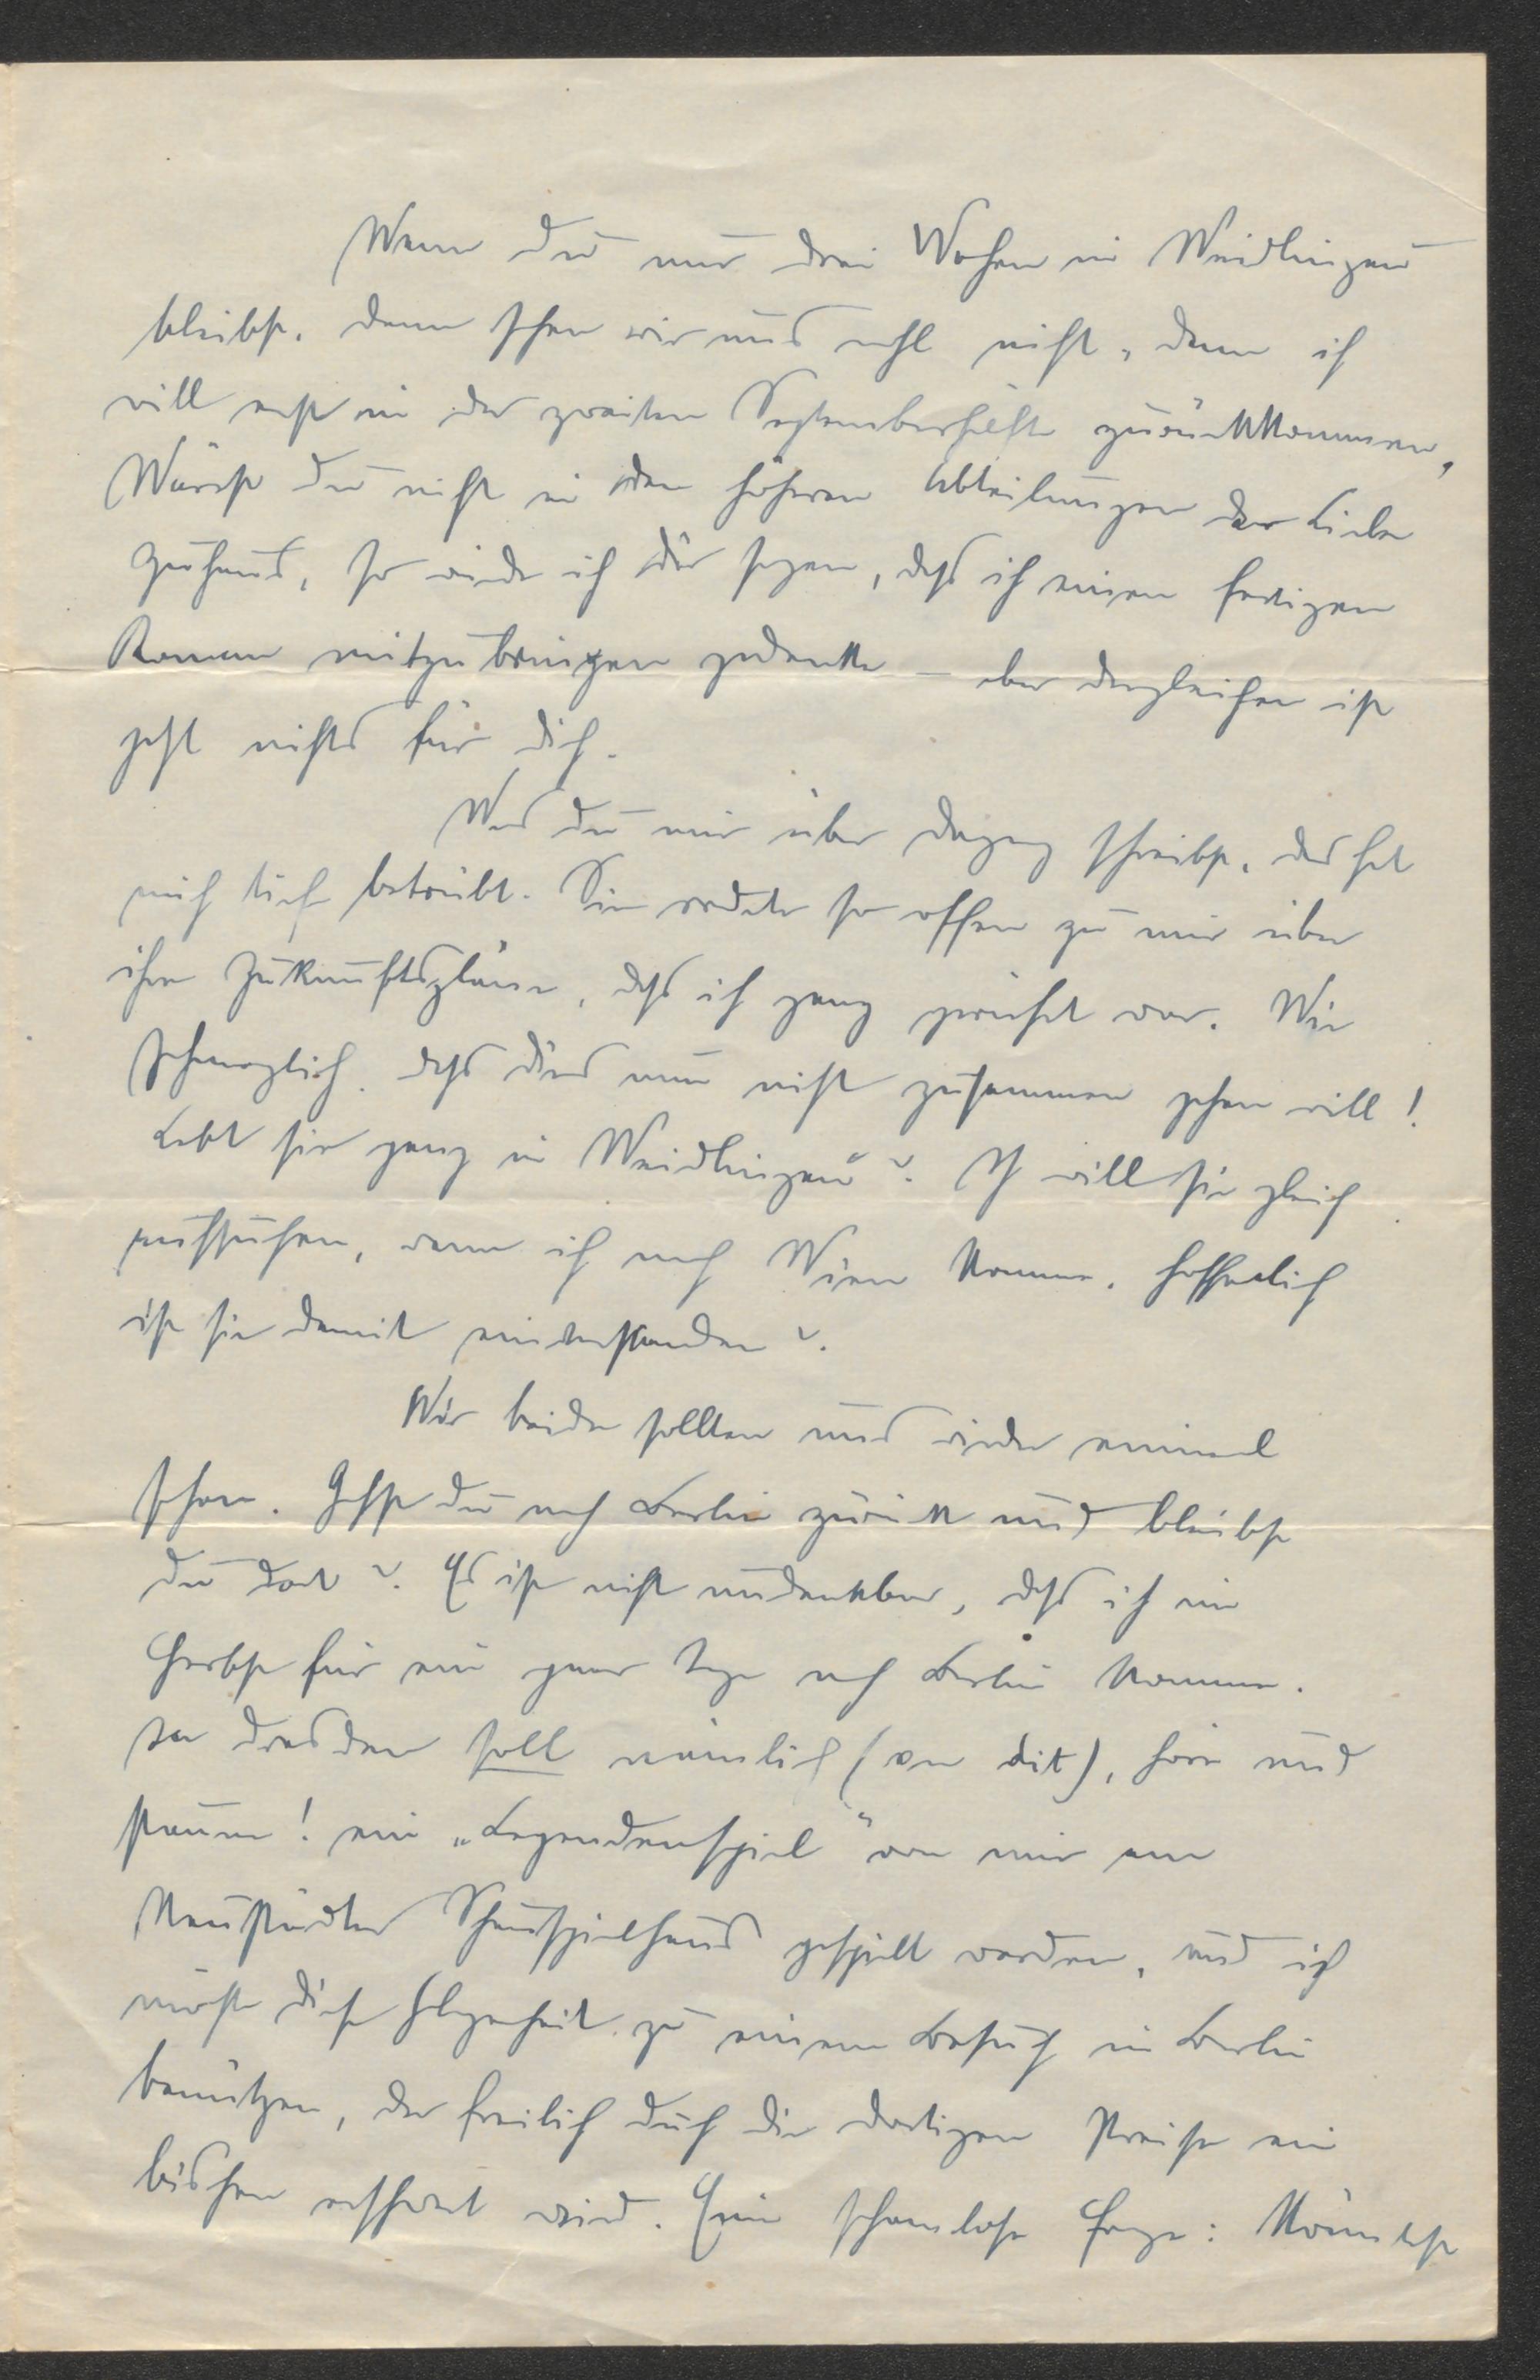 Wenn Du nur drei Wochen in Weidlingau
bleibst, dann sehen wir uns wohl nicht, denn ich
will erst in der zweiten Septemberhälfte zurückkommen,
Wärest Du nicht in den höheren Abteilungen der Liebe
zuhaus, so würde ich Dir sagen, dass ich einen fertigen
Roman mitzubringen gedenke – aber dergleichen ist
jetzt nichts für Dich.
Was Du mir über schreibst, das hat
mich tief betrübt. Sie redete so offen zu mir über
ihre Zukunftspläne, dass ich ganz war. Wie
schmerzlich, dass dies nun nicht zusammen gehen will!
Lebt sie ganz in Weidlingau? Ich will sie gleich
aufsuchen, wenn ich nach Wien komme. Hoffentlich
ist sie damit einverstanden?
Wir beide sollten uns wieder einmal
sehen. Gehst Du nach Berlin zurück und bleibst
Du dort? Es ist nicht undenkbar, dass ich im
Herbst für ein paar Tage nach Berlin komme.
In Dresden soll nämlich (on dit), höre und
staune! ein „Legendenspiel“ von mir am
Neustädter Schauspielhaus gespielt werden, und ich
möchte diese Gelegenheit zu einem Besuch in Berlin
benützen, der freilich durch die dortigen Preise ein
bischen erschwert wird. Eine schamlose Frage: Könntest